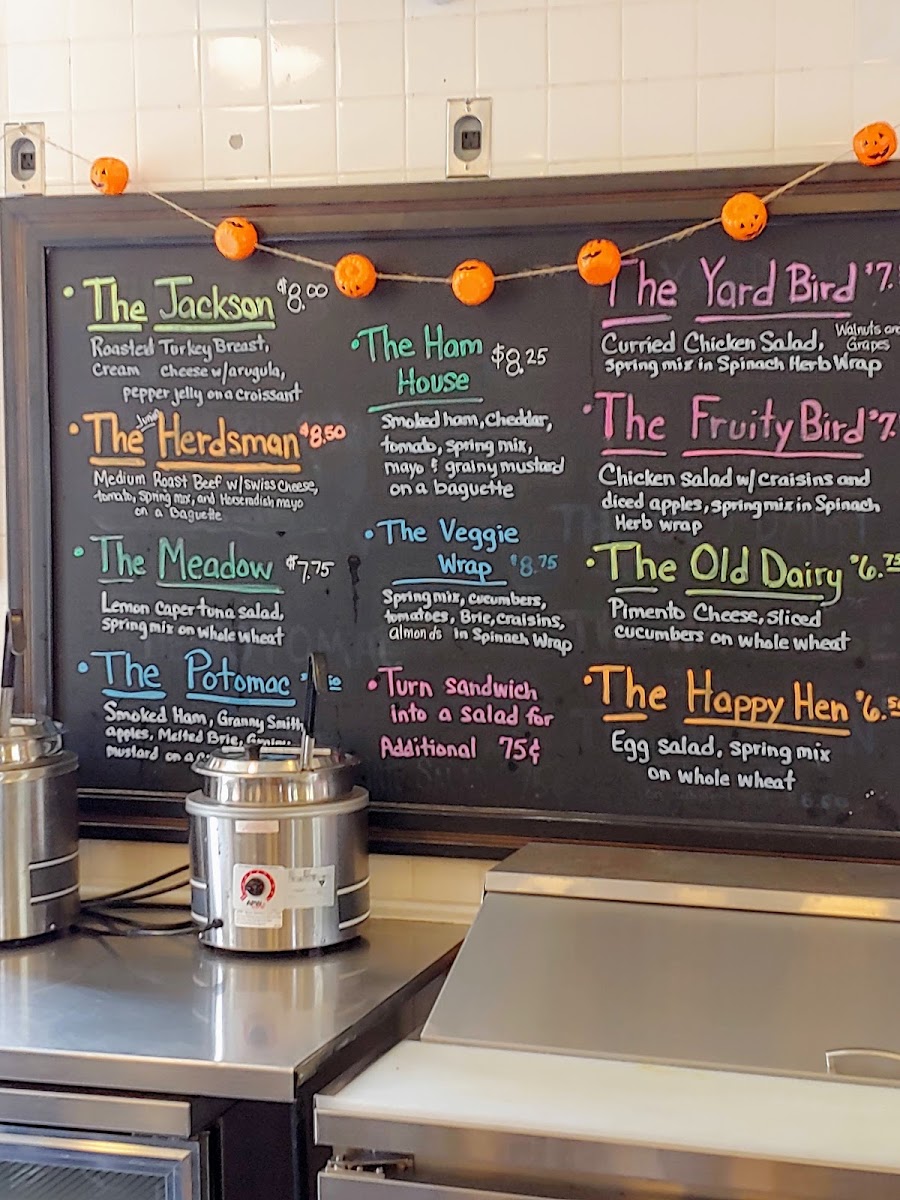 The Jackson $8.00
Roasted Turkey Breast,
Cream cheese w/arugula,
pepper jelly on a croissant
The Junior Herdsman $8.50
Medium Roast Beef w/Swiss Cheese,
tomato, Spring mix, and Horseradish mayo
on a Baguette
The Meadow $7.75
Lemon Caper tuna salad,
spring mix on whole wheat
The Potomac
Smoked Ham, Granny Smith
apples, Melted Brie,
mustard on a
The Ham
House $8.25
Smoked ham, Cheddar,
tomato, spring mix,
mayo & grainy mustard
on a baguette
The Veggie
Wrap $8.75
Spring mix, cucumbers,
tomatoes, Brie, craisins,
almonds in Spinach Wrap
Turn sandwich
into a salad for
Additional 75¢
The Yard Bird $7.
Curried Chicken Salad, Walnuts and
Grapes
spring mix in Spinach Herb Wrap
The Fruity Bird $7.
Chicken salad w/ craisins and
diced apples, spring mix in Spinach
Herb wrap
The Old Dairy $6.75
Pimento Cheese, sliced
cucumbers on whole wheat
The Happy Hen $6.50
Egg salad, spring mix
on whole wheat